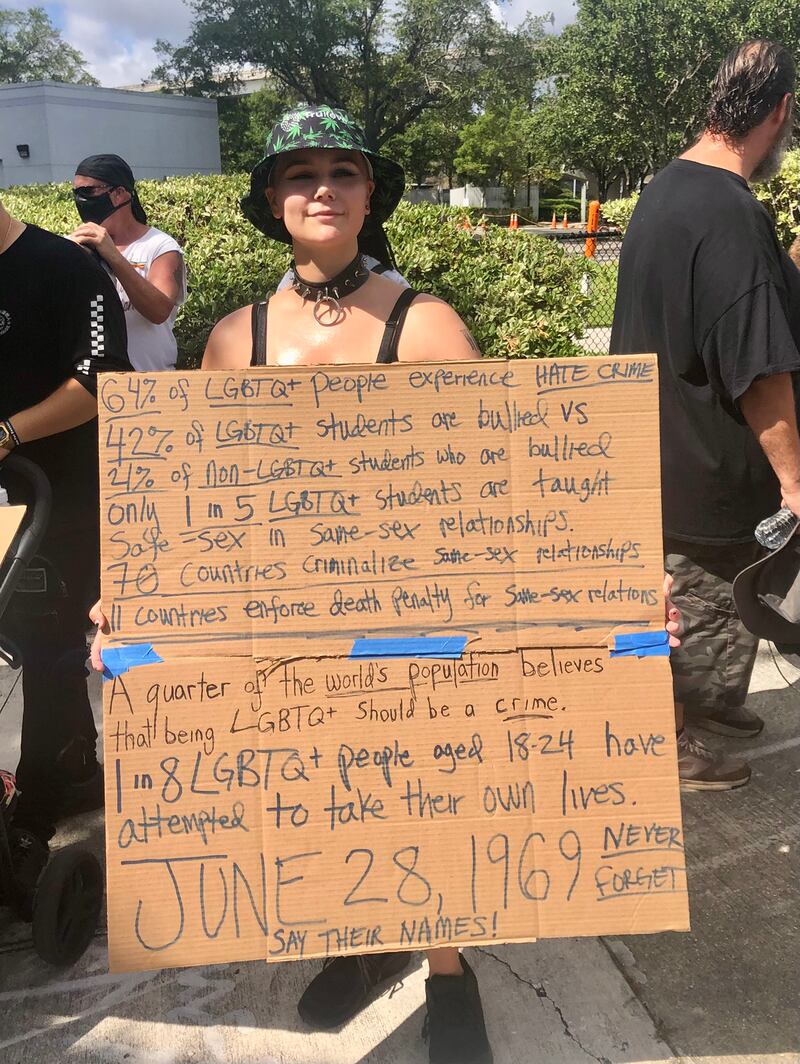 64% of LGBTQ+ People experience HATE CRIME
42% of LGBTQ+ students are bullied VS
21% of Non-LGBTQ+ students who are bullied
only 1 in 5 LGBTQ+ students are taught
Safe-sex in same-sex relationships.
70 Countries Criminalize same-sex relationships
11 Countries enforce death penalty for same-sex relations
A quarter of the world's population believes
that being LGBTQ+ should be a crime.
1 in 8 LGBTQ+ people aged 18-24 have
attempted to take their own lives.
JUNE 28, 1969 NEVER
FORGET
SAY THEIR NAMES!